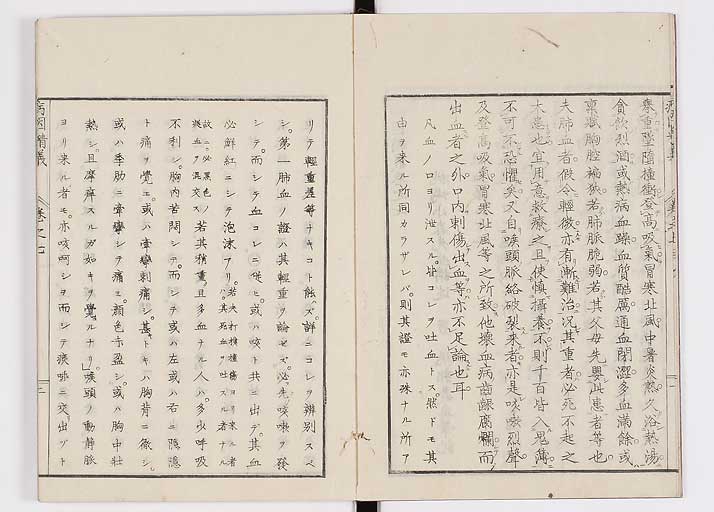 擧重墜墮撞衝登高吸氣冒寒北風中暑炎熱久浴熱湯
貪飲烈酒或熱病血躁血質酷厲通血閉澀多血滿餘或
稟賦胸腔褊狹若肺脈脆弱若其父母先嬰此患者等也
夫肺血者假令輕微亦有漸難治況其重者必死不起之
大患也宜用意救療之且使愼攝養不則千百皆入鬼簿
不可不恐懼矣又自喉頭脈絡破裂來者亦是咳嗽烈聲
及登高吸氣冒寒北風等之所致他壞血病齒齦腐爛而
出血者之外口内刺傷出血等亦不足論也耳
凡血ノ口ヨリ泄スル皆コレヲ吐血トス然ドモ其
由ヲ來ル所同カラザレバ則其證モ亦殊ナル所ヲ
リテ輕重差等ナキコト能ハズ詳ニコレヲ辨別スベ
シ第一肺血ノ證ハ其輕重ヲ論セズ必先咳嗽ヲ發
シテ而シテ血コレニ從ヒ或ハ咳ト共ニ出デ其血
必鮮紅ニシテ泡沫アリ若夫打撲撞傷ヨリ來ル者ハ其死血ヲ吐スル者ナル
故ニ必黑色ノ凝血ヲ混交ス若其稍重且多血ナル人ハ多少呼吸
不利シ胸内苦悶シテ而シテ或ハ左或ハ右ニ隱隱
ト痛ヲ覺エ或ハ牽攣刺痛シ甚キトキハ胸背ニ徹シ
或ハ季肋ニ牽攣シテ痛ミ顏色赤盈シ或ハ胸中壯
熱シ且摩痒スルガ如キヲ覺ルナリ喉頭ノ動靜脈
ヨリ來ル者モ亦咳呵シヲ而シテ痰唾ニ交出ヅト
病因精義
卷之七